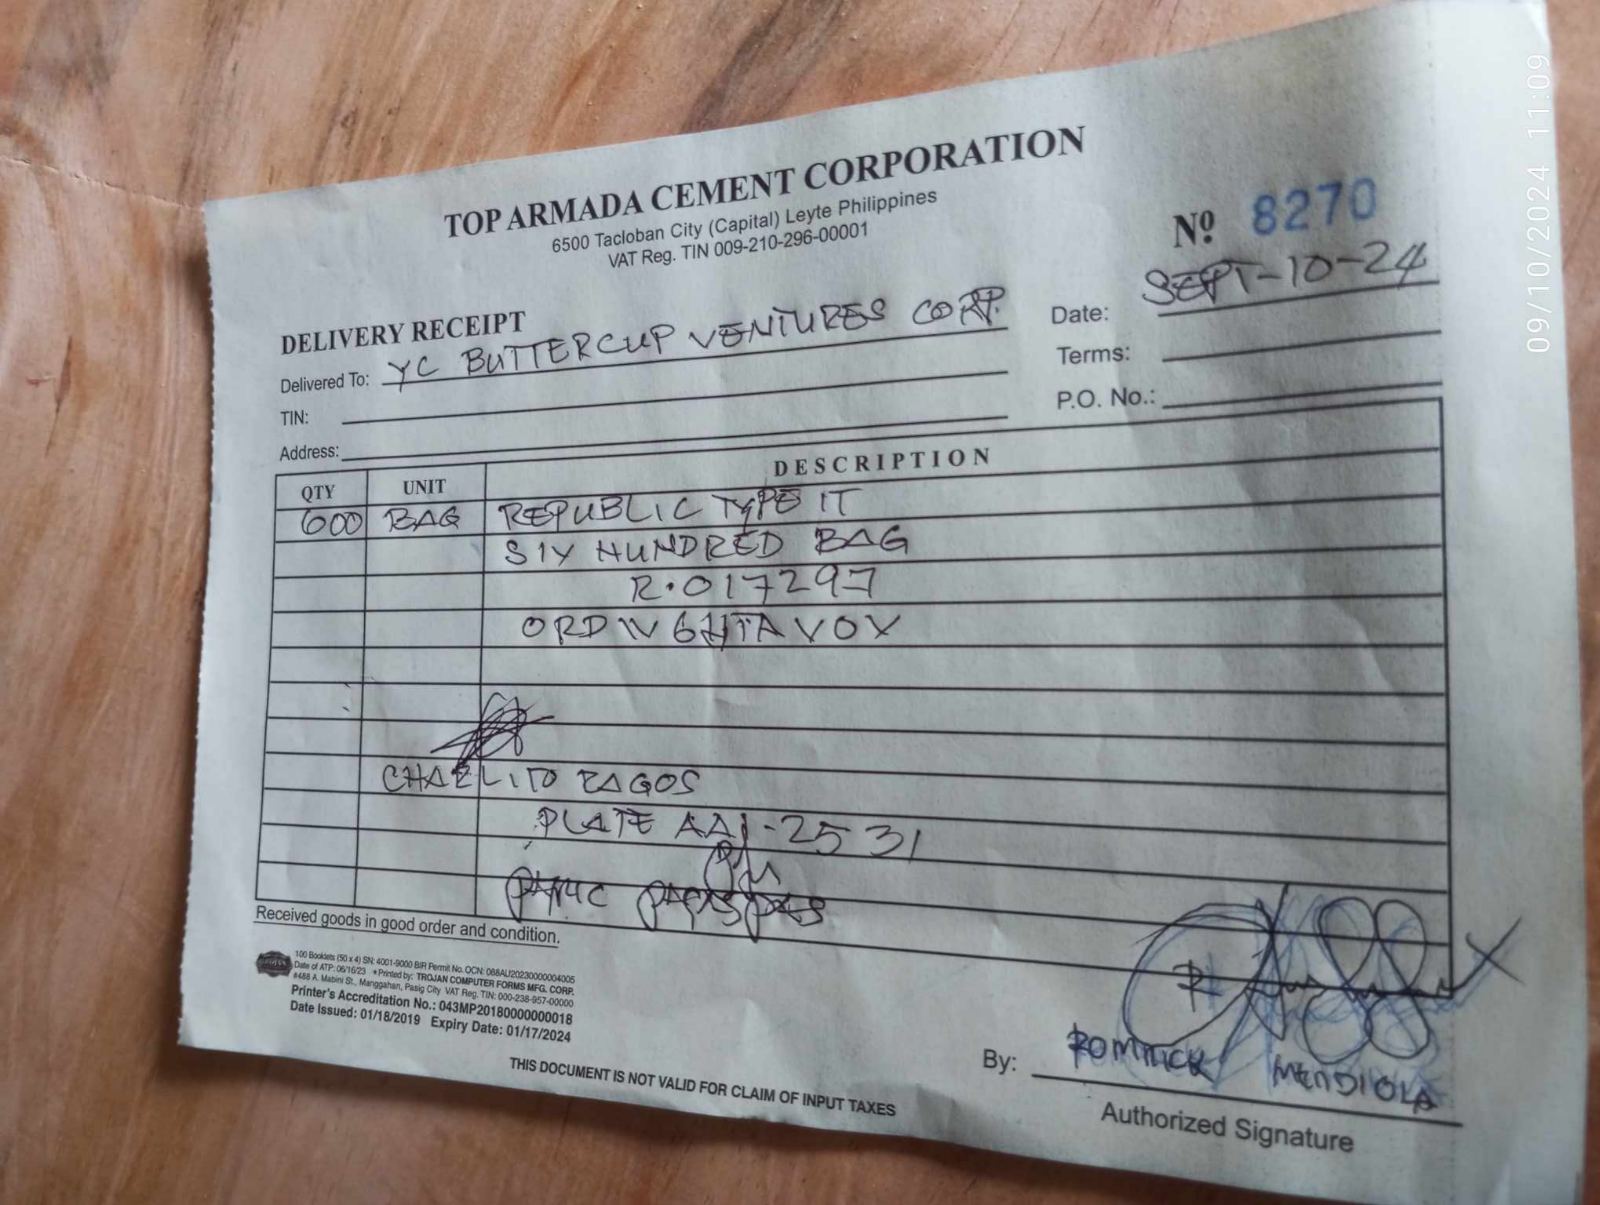 TOP ARMADA CEMENT CORPORATION
6500 Tacloban City (Capital) Leyte Philippines
VAT Reg. TIN 009-210-296-00001
Nº 8270
DELIVERY RECEIPT
Date: SEPT-10-24
Delivered To: YC BUTTERCUP VENTURES CORP.
Terms:
TIN:
P.O. No.:
Address:
QTY UNIT DESCRIPTION
600 BAG REPUBLIC TYPE IT
SIX HUNDRED BAG
R.017297
CHARLITO RAGOS
PLATE AAJ-2531
Received goods in good order and condition.
100 Booklets (50 x 4) SN: 4001-9000 BIR Permit No. OCN: 088AU20230000004005
Date of ATP: 06/16/23 *Printed by: TROJAN COMPUTER FORMS MFG. CORP.
#488 A. Mabini St., Manggahan, Pasig City VAT Reg. TIN: 000-238-957-00000
Printer's Accreditation No.: 043MP20180000000018
Date Issued: 01/18/2019 Expiry Date: 01/17/2024
By: ROMMICK MENDIOLA
Authorized Signature
THIS DOCUMENT IS NOT VALID FOR CLAIM OF INPUT TAXES
09/10/2024 11:09